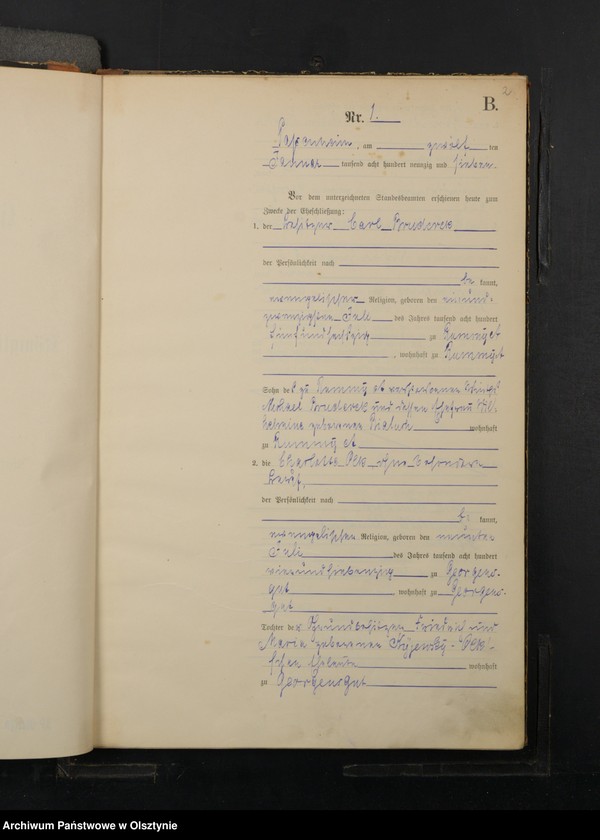 2
B.
Nr. 1.
Passenheim, am zwölf ten
Januar tausend acht hundert neunzig und sieben
Vor dem unterzeichneten Standesbeamten erschienen heute zum
Zwecke der Eheschließung:
1. der Besitzer Carl
der Persönlichkeit nach
be kannt,
evangelischer Religion, geboren den einund-
zwanzigsten Juli des Jahres tausend acht hundert
fünfundsechszig zu Rummy
, wohnhaft zu Rummy
Sohn des zu Rummy verstorbenen
Michael und dessen Ehefrau Wil-
helmine geborenen wohnhaft
zu Rummy
2. die Charlotte Olk ohne besondern
Beruf,
der Persönlichkeit nach
be kannt,
evangelischer Religion, geboren den neunten
Juli des Jahres tausend acht hundert
vierundsiebenzig zu Georgens-
gut, wohnhaft zu Georgens-
gut
Tochter der Grundbesitzer Friedrich und
Marie geborenen Olk'-
schen Eheleute wohnhaft
zu Georgensgut
Archiwum Państwowe w Olsztynie